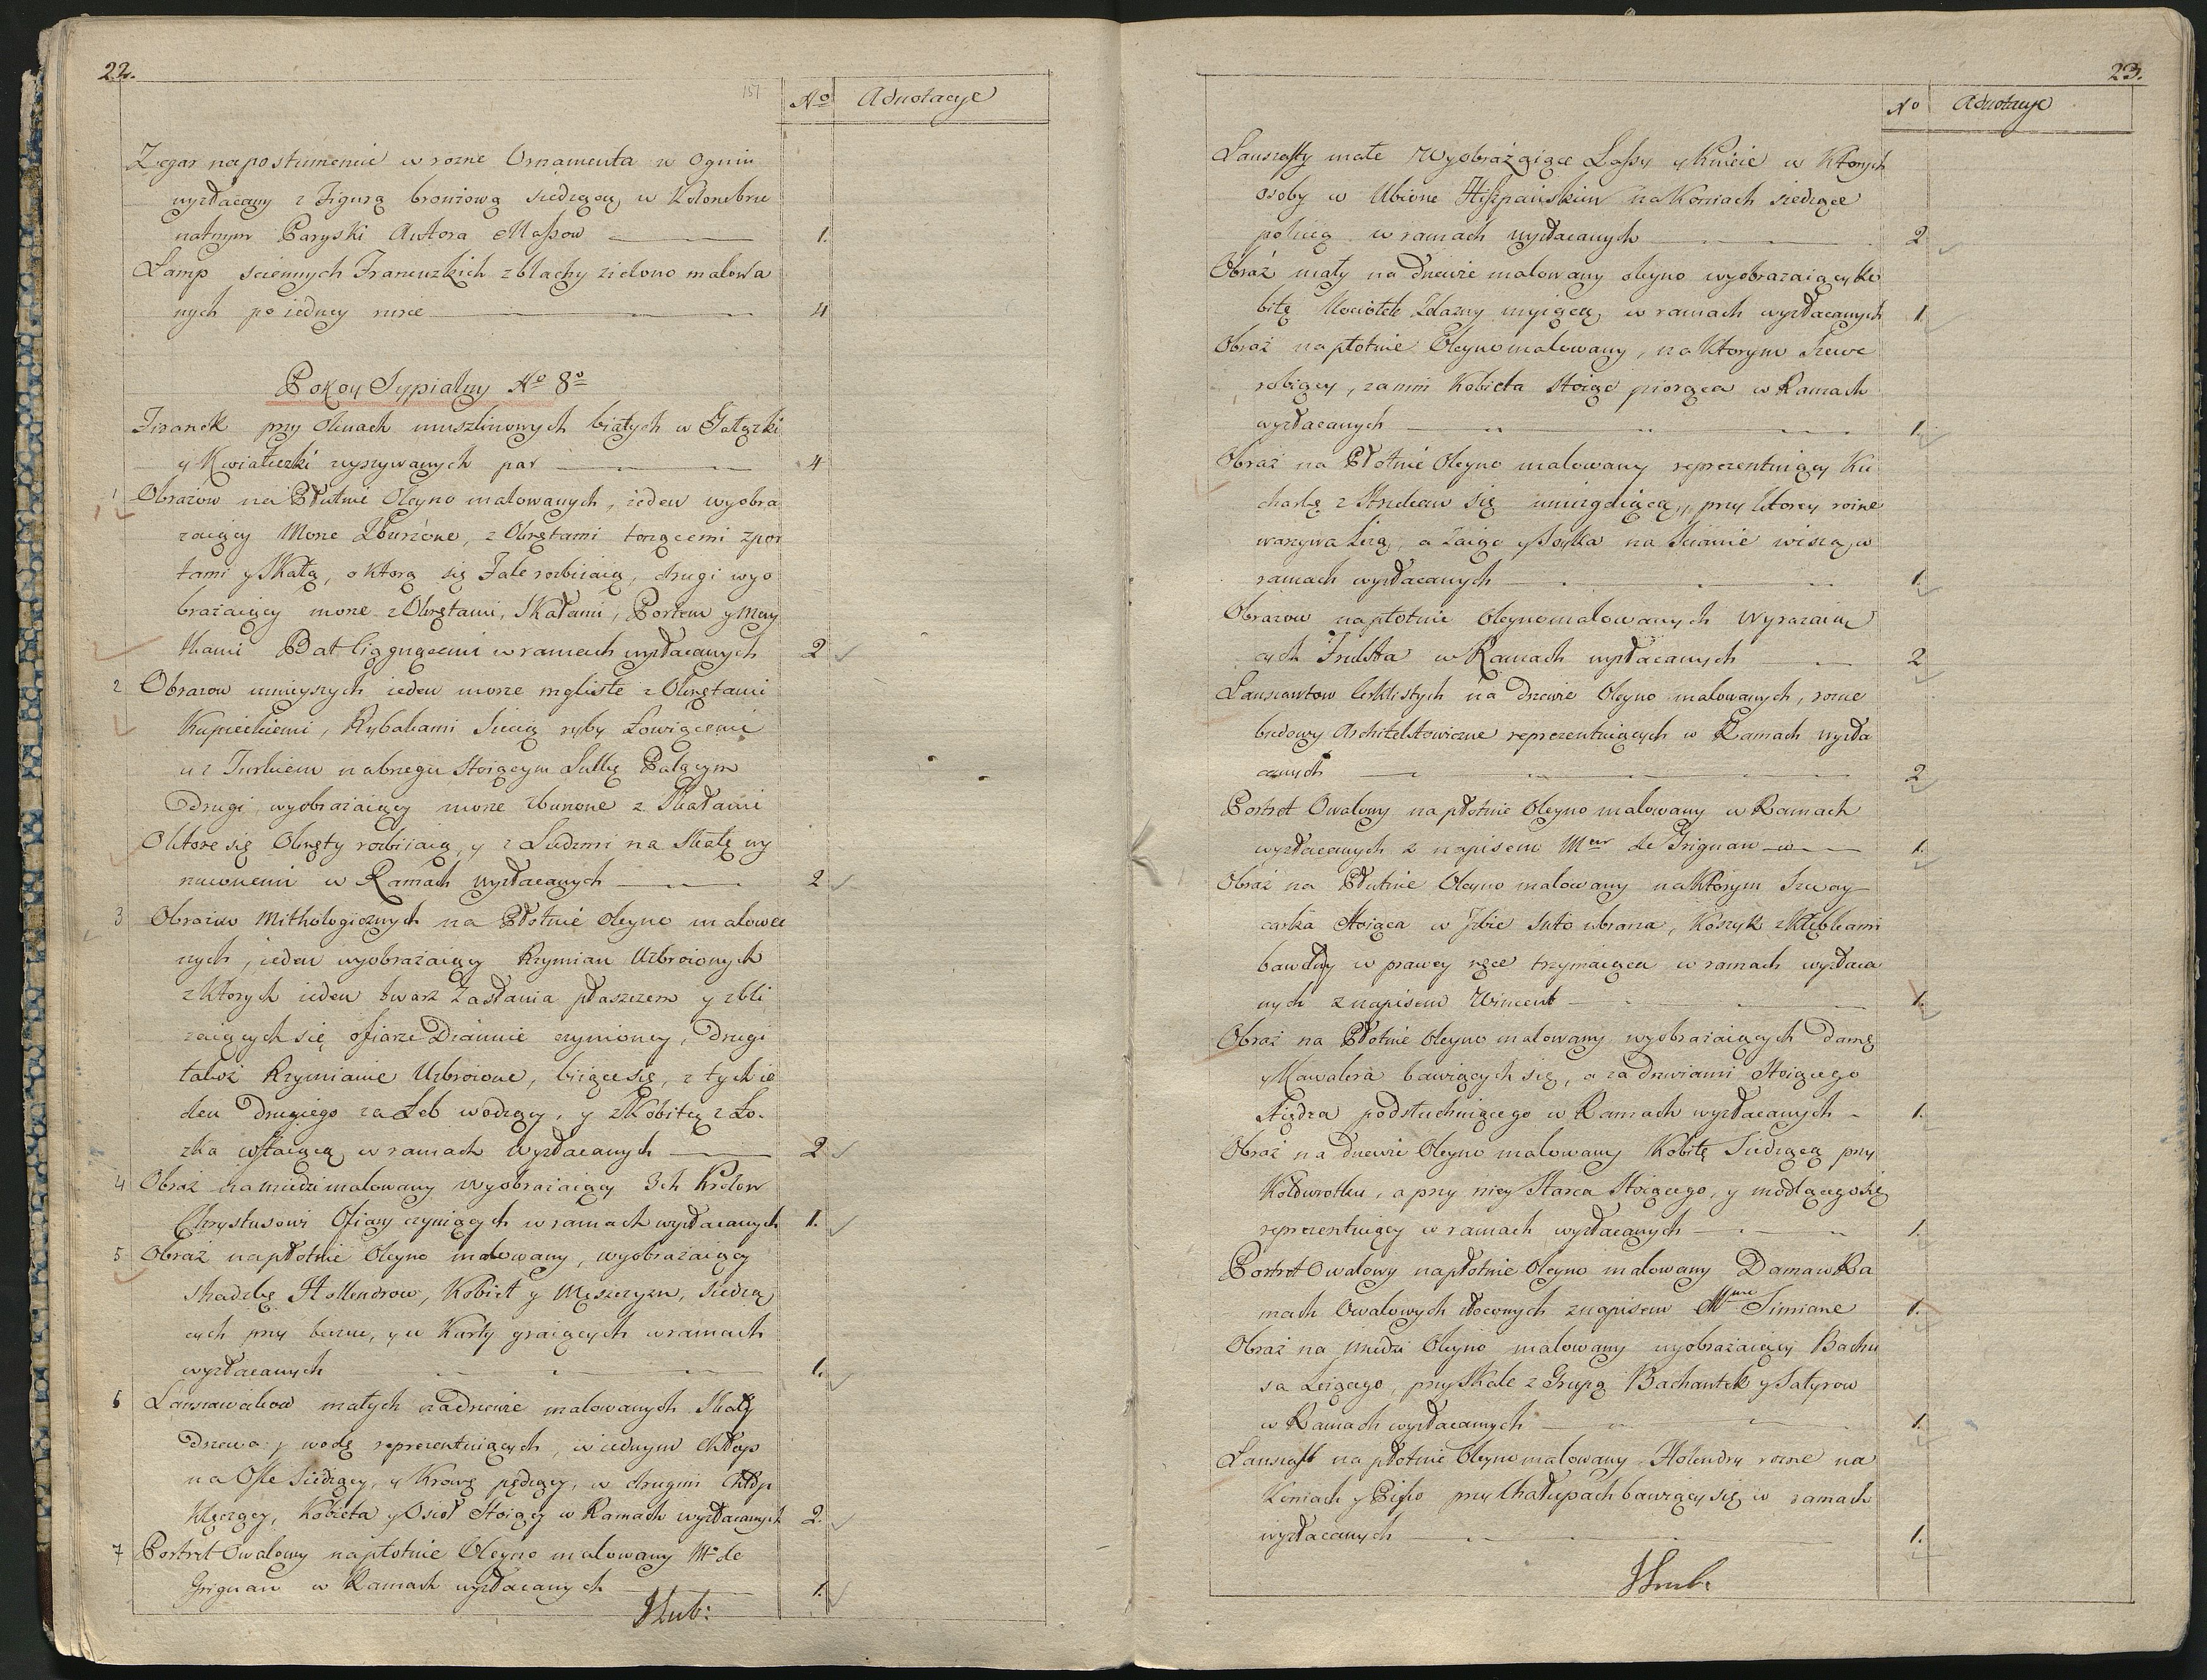 22.
No Adnotacye
Zegar na postumencie w rozne Ornamenta w Ogniu
wyzłacany z Figurą bronzową siedzącą w Kolorze bru
natnym Paryski Autora 1.
Lamp sciennych Francuzkich z blachy zielono malowa
nych po iedney rurce 4
Pokoy Sypialny No 8o
Firanek przy Oknach muszlinowych białych w Gałązki
y Kwiateczki wyszywanych par 4
1 Obrazow na Płutnie Oleyno malowanych, ieden wyobra
zaiący Morze Zburzone, z Okrętami tonącemi z por
tami y Skałą, o ktorą się Fale rozbiiaią, drugi wyo
brażaiący morze z Okrętami, Skałami, Portem y May
tkami Bat ciągnącemi w ramach wyzłacanych 2
2 Obrazow mnieyszych ieden morze mgliste z Okrętami
Kupieckiemi, Rybakami Siecią ryby Łowiącemi
y z Turkiem na brzegu stoiącym Lulkę Palącym
Drugi wyobrażaiący morze zburzone z Skałami
O ktore się Okręty rozbiiaią, y z Ludzmi na Skałę wy
rzuconemi w Ramach wyzłacanych 2
3 Obrazow Mithologicznych na Płotnie oleyno malowa
nych, ieden wyobrażaiący Rzymian Uzbroionych
z ktorych ieden twarz Zasłania płaszczem y zbli
żaiących się ofiarze Diannie czynioney, Drugi
takoż Rzymianie Uzbroione, biiące się, z tych ie
den Drugiego za Łeb wodzący, y z Kobietą z Ło-
żka wstaiącą w ramach Wyzłacanych 2
4 Obraz na miedzi malowany wyobrażaiący 3ch Krolow
Chrystusowi Ofiary czyniących w ramach wyzłacanych 1.
5 Obraz na płotnie Oleyno malowany, wyobrażaiący
Shadzkę Hollendrow, Kobiet y Męszczyzn, siedzą
cych przy beczce, y w Karty graiących w ramach
wyzłacanych 1.
6 małych na drzewie malowanych Skały
Drzewa y wodę reprezentuiących, w iednym chłop
na Ośle Siedzący, y Krowę pędzący, w drugim Chłop
Klęczący, Kobieta y Osioł Stoiący w Ramach wyzłacanych 2.
7 Portret Owalowy na płotnie Oleyno malowany M de
Grignan w Ramach wyzłacanych 1.
23.
No Adnotacye
Lanszafty małe Wyobrażaiące Lassy y Kniecie w Ktorych
osoby w Ubiorze Hiszpańskim na Koniach siedzące
poluią w ramach wyzłacanych 2
Obraz mały na drzewie malowany oleyno wyobrazaiący ko
bitę Kociołek Żelazny myiącą, w ramach wyzłacanych 1.
Obraz na płotnie Oleyno malowany, na ktorym Szewc
robiący, za nim Kobieta stoiąc piorąca w Ramach
wyzłacanych 1.
Obraz na Płotnie Oleyno malowany reprezentuiący Ku
charkę z Strzelcem się umizgaiącą, przy ktorey rożne
warzywa Leżą, a Zaiąc y Soyka na Scianie wiszą, w
ramach wyzłacanych 1.
Obrazow na płotnie Oleyno malowanych Wyrazaią
cych Frukta w Ramach wyzłacanych 2
na Drzewie Oleyno malowanych, rozne
budowy Architektowiczne reprezentuiących w Ramach wyzła
canych 2
Portret Owalowy na płotnie Oleyno malowany w Ramach
wyzłacanych z napisem Meur de Grignan 1.
Obraz na Płutnie Oleyno malowany na ktorym Szway
carka Stoiąca w Izbie Suto ubrana, Koszyk z kłębkami
bawełny w prawey ręce trzymaiąca w ramach wyzłaca
nych z napisem Wincent 1.
Obraz na Płotnie Oleyno malowany wyobrażaiących Damę
y Kawalera bawiących się, a za drzwiami Stoiącego
Xiędza podsłuchuiącego w Ramach wyzłacanych 1.
Obraz na drzewie Oleyno malowany Kobitę Siedzącą przy
Kołowrotku, a przy niey Starca Stoiącego, y modlącego się
reprezentuiący w ramach wyzłacanych 1.
Portret Owalowy na płotnie Oleyno malowany Dama w Ra
mach Owalowych złoconych z napisem Mme Simiane 1.
Obraz na Miedzi Oleyno malowany wyobrażaiący Bachu
sa Leżącego, przy Skale z Grupą Bachantek y Satyrow
w Ramach wyzłacanych 1.
Lanszaft na płotnie Oleyno malowany Holendry rozne na
Koniach y Pieszo przy Chałupach bawiący się w ramach
wyzłacanych 1.